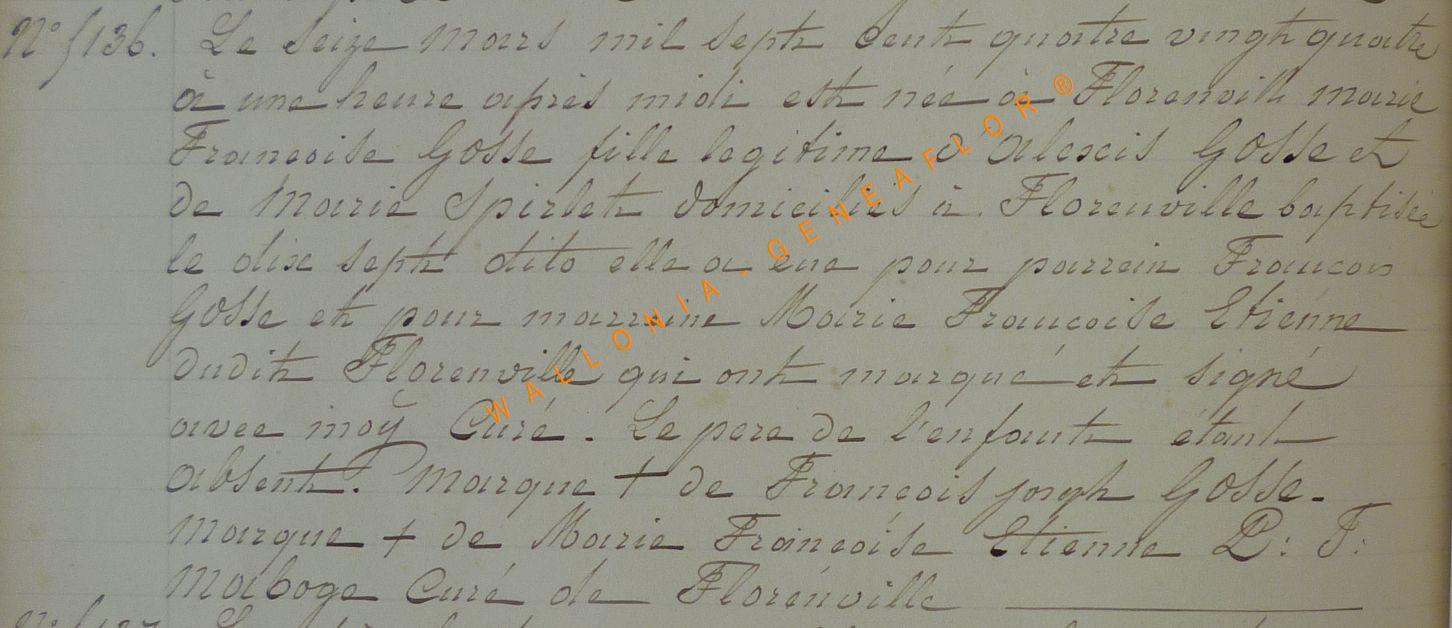 N° 136. Le Seize mars mil sept Cent quatre vingt quatre
à une heure après midi est née à Florenville marie
Francoise Gosse fille legitime d Alexis Gosse et
de Marie Spirlet domiciliés à Florenville baptisée
le dix sept dito elle a eue pour parrain Francois
Gosse et pour marraine Marie Francoise Etienne
dudit Florenville qui ont marqué et signé
avec moÿ Curé. Le pere de l'enfant étant
absent. Marque + de Francois joseph Gosse.
Marque + de Marie Francoise Etienne P: F:
Maboge Curé de Florenville
WALLONIA-GENEAFLOR®